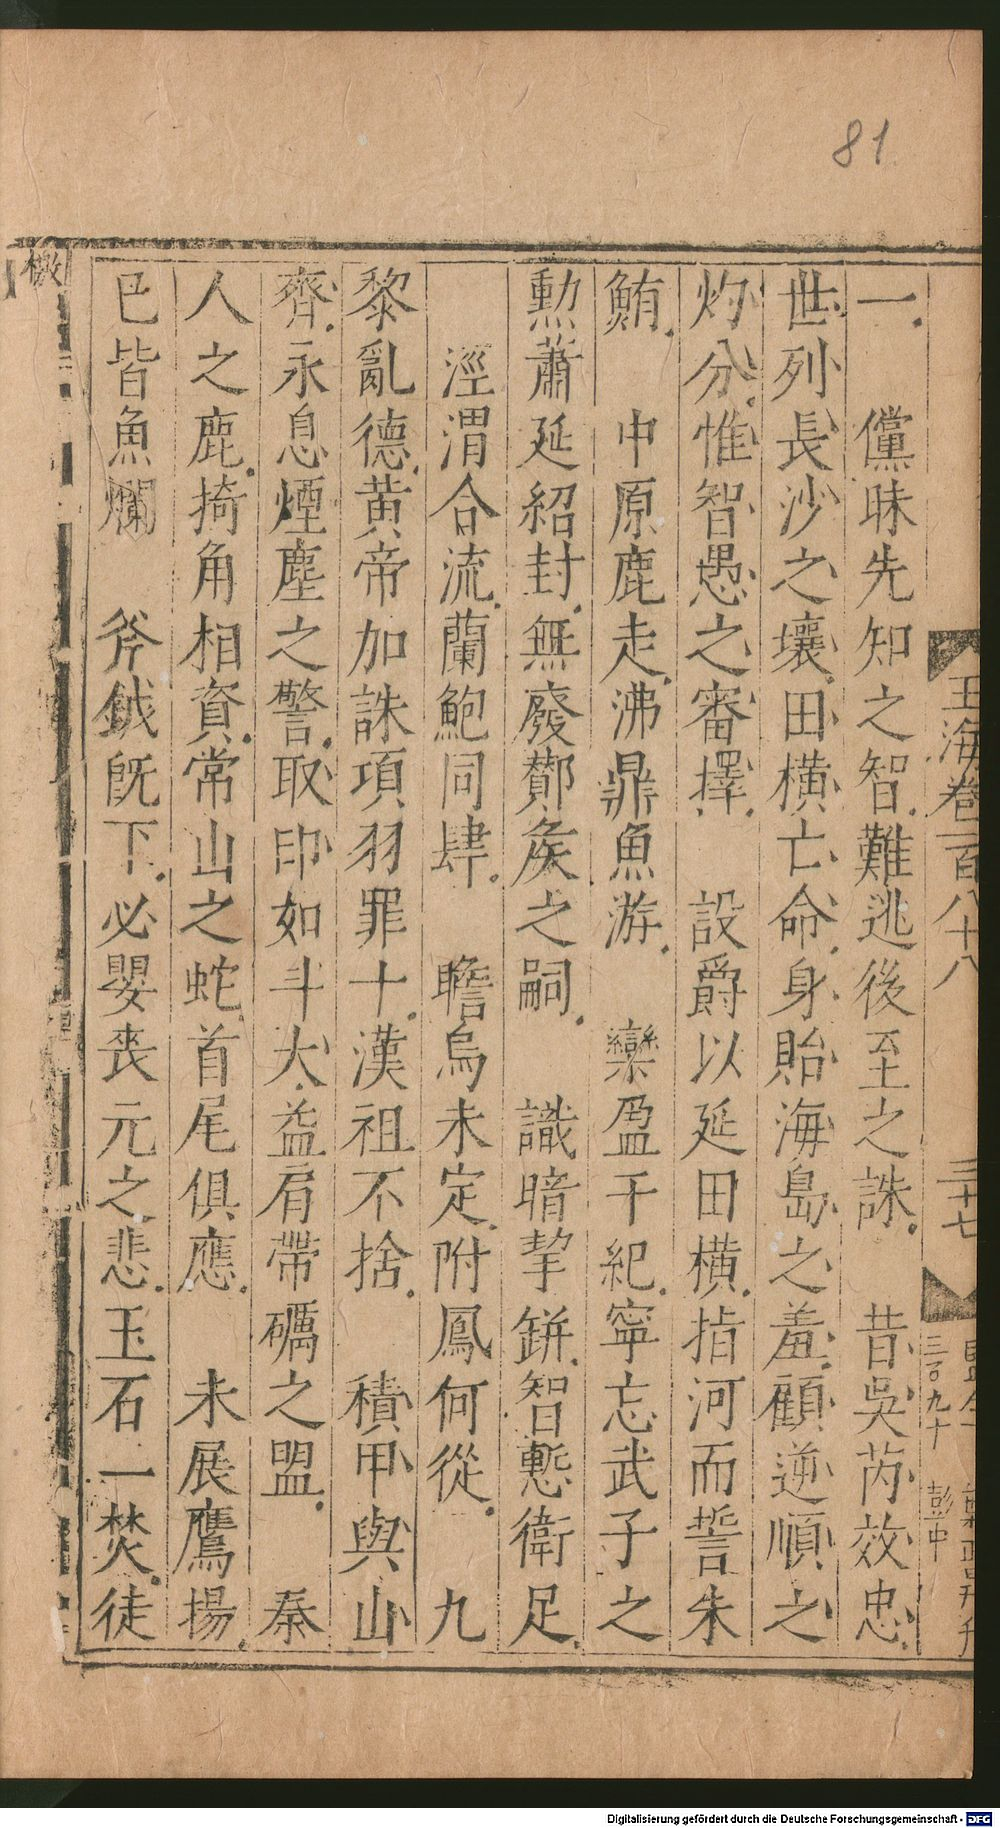 81
玉海卷一百八十八
三十七
三百九十
彭中
一 儻昧先知之智難逃後至之誅 昔吳芮效忠
世列長沙之壤田橫亡命身貽海島之羞顧逆順之
灼分惟智愚之審擇 設爵以延田橫指河而誓朱
鮪 中原鹿走沸鼎魚游 欒盈干紀寧忘武子之
勲蕭延紹封無廢酇矦之嗣 識暗挈缾智慙衛足
涇渭合流蘭鮑同肆 瞻烏未定附鳳何從 九
黎亂德黄帝加誅項羽罪十漢祖不捨 積甲與山
齊永息煙塵之警取印如斗大益肩帶礪之盟 秦
人之鹿掎角相資常山之蛇首尾俱應 未展鷹揚
已皆魚爛 斧鉞旣下必嬰喪元之悲玉石一焚徒
檄
Digitalisierung gefördert durch die Deutsche Forschungsgemeinschaft - DFG